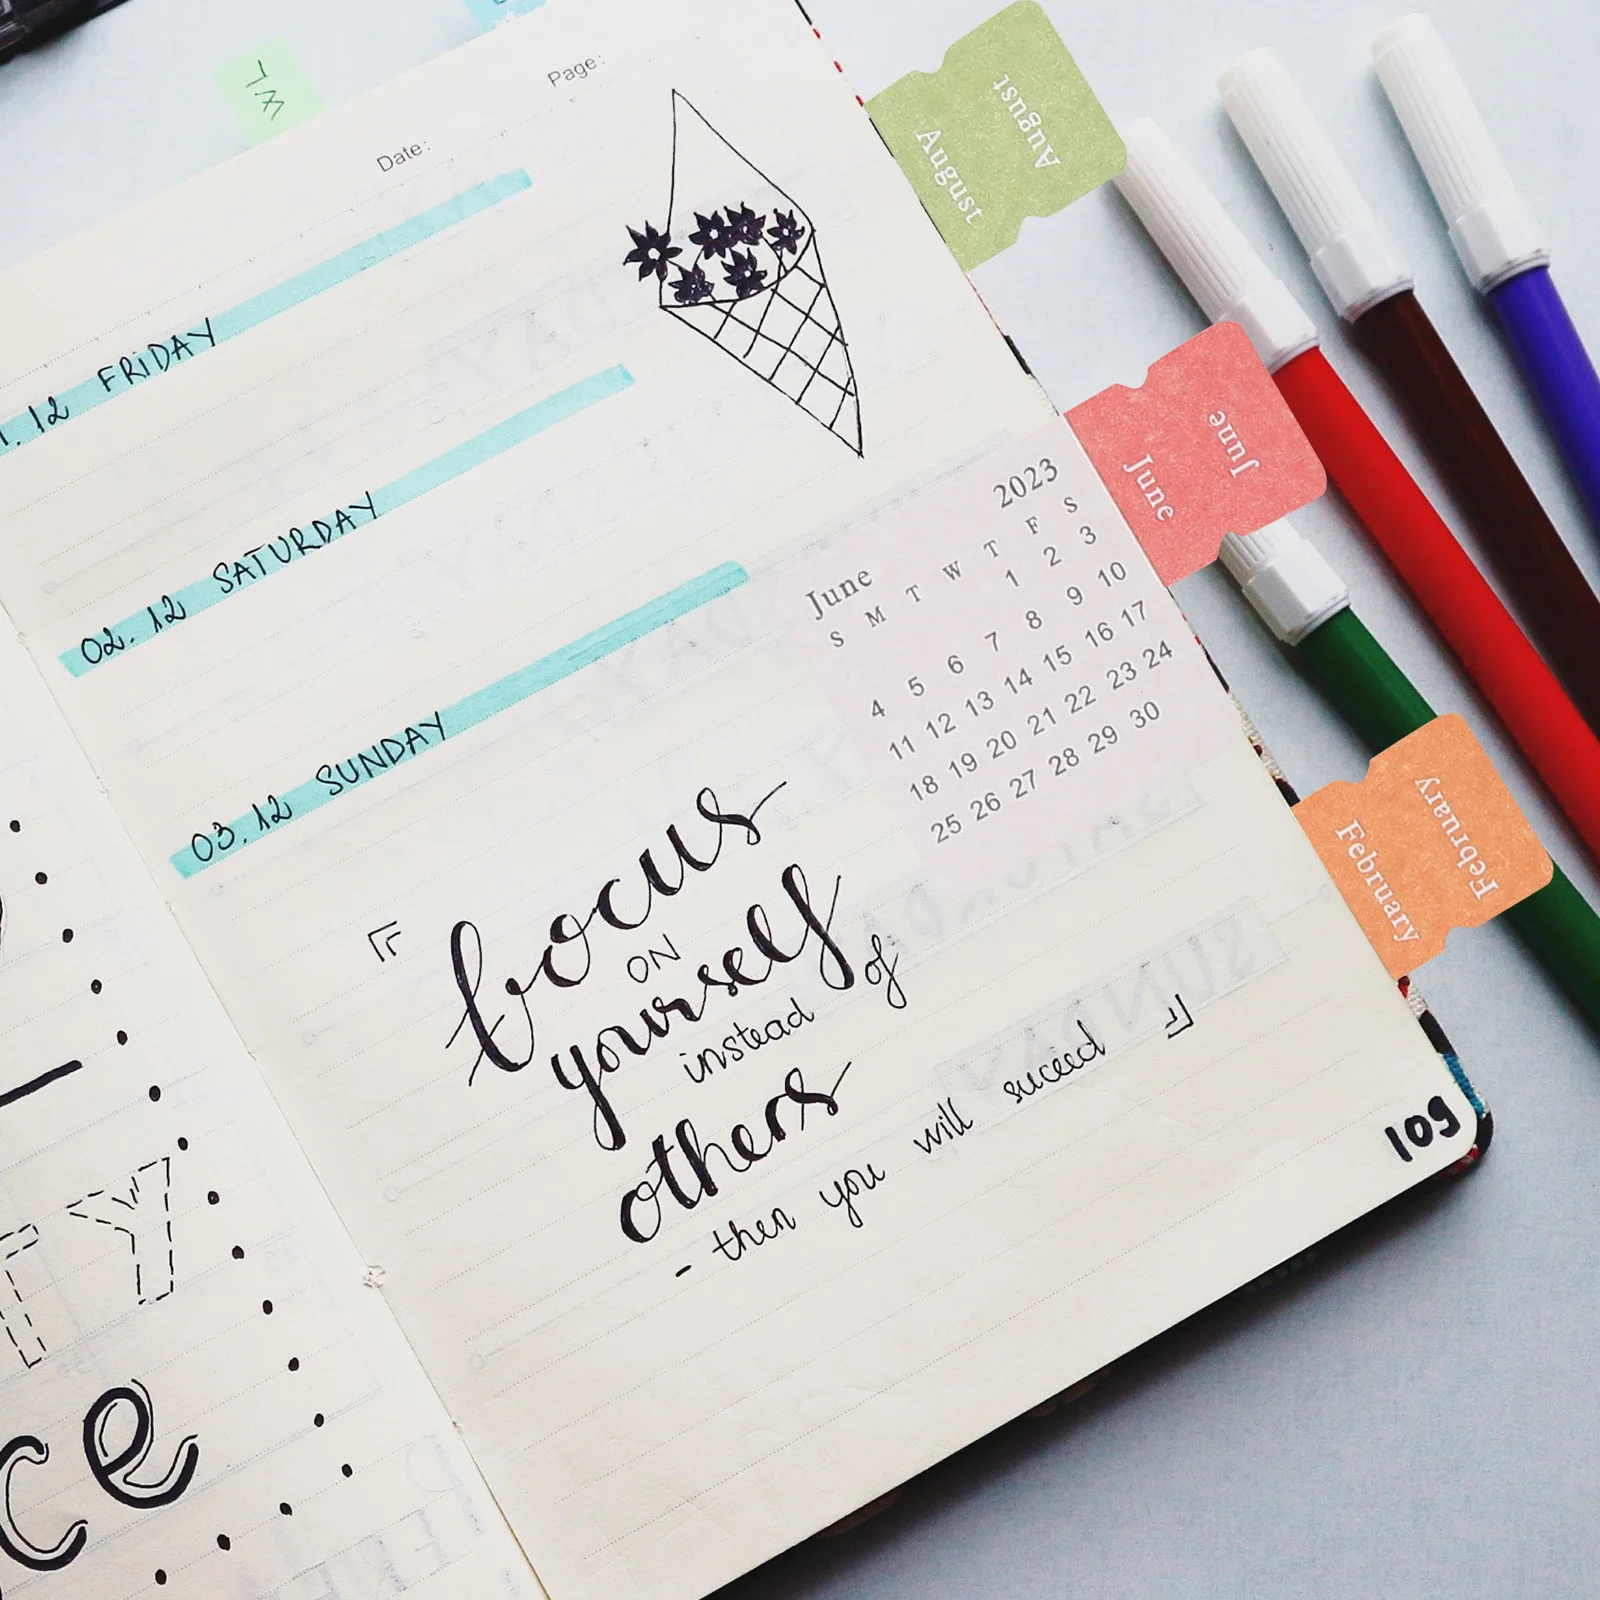 Page:
Date:
August
August
.12 FRIDAY
02.12 SATURDAY
03.12 SUNDAY
June
June
June 2023
S M T W T F S
1 2 3
4 5 6 7 8 9 10
11 12 13 14 15 16 17
18 19 20 21 22 23 24
25 26 27 28 29 30
February
February
focus
ON
yourself
instead of
others
- then you will suceed
109
TY
ce